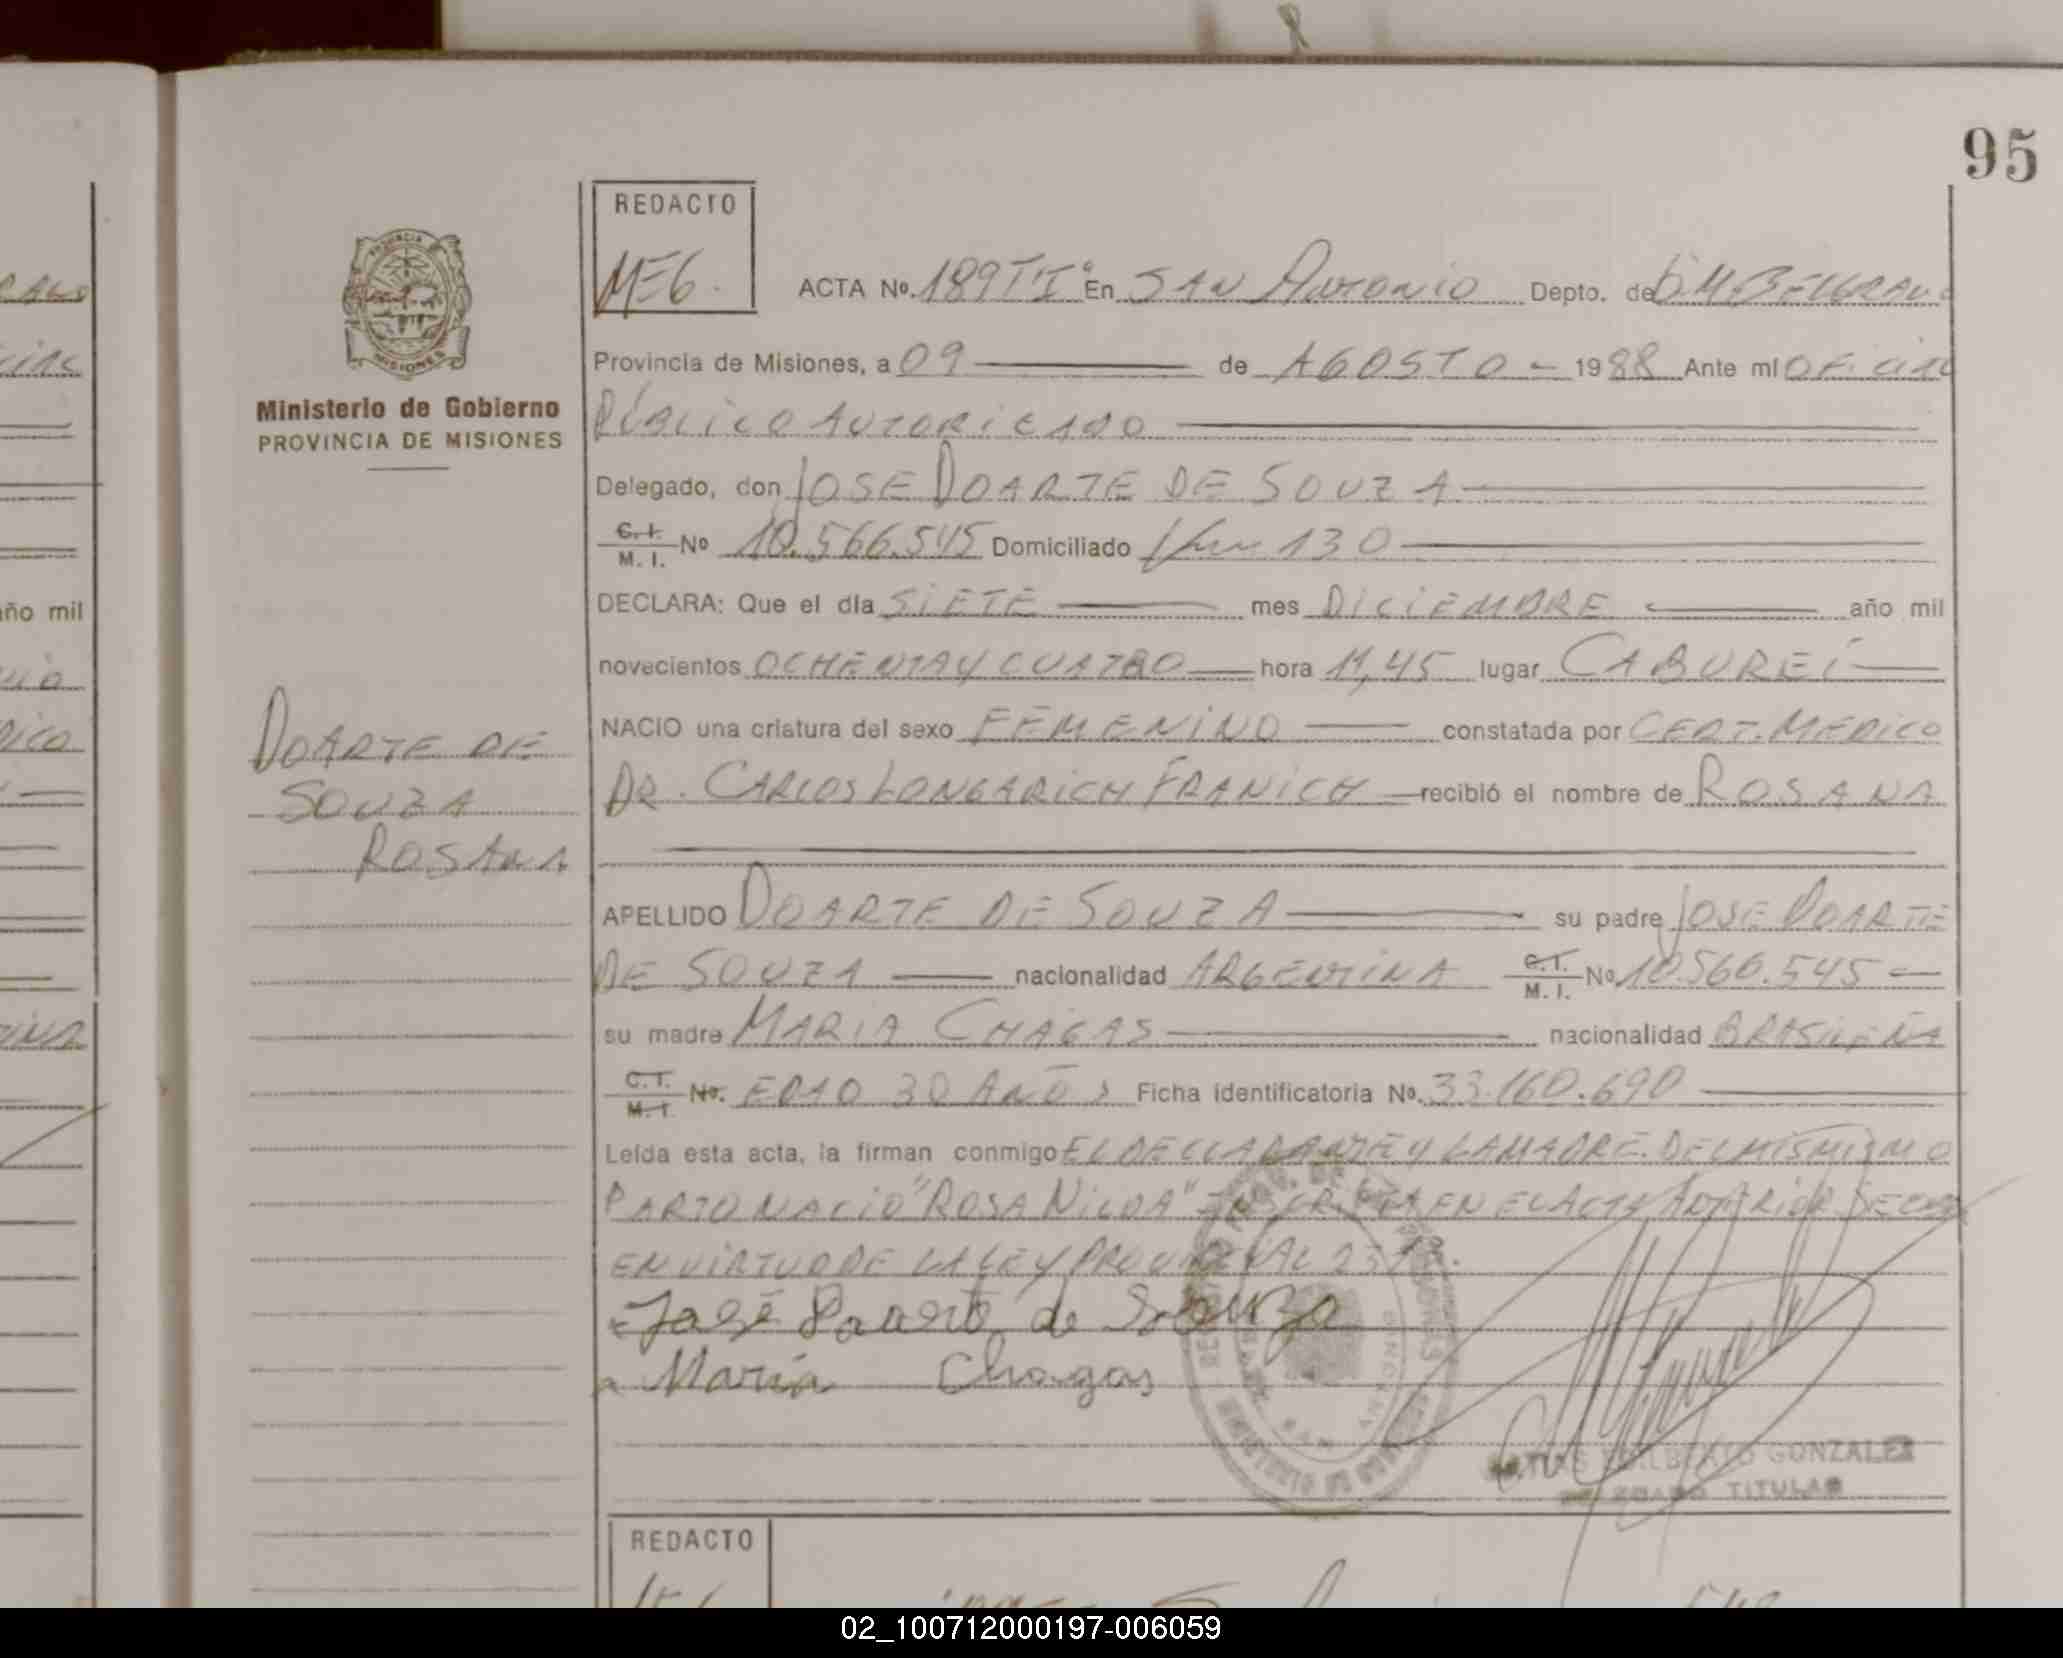 95
REDACTO
MEG.
ACTA Nº. 189 TI° En SAN Antonio Depto. de G.M.BELGRANO
Provincia de Misiones, a 09 de AGOSTO - 1988 Ante mí OFICIAL
PÚBLICO AUTORIZADO
Delegado, don JOSE DOARTE DE SOUZA
C. I. M. I. Nº 10.566.545 Domiciliado Km 130
DECLARA: Que el día SIETE mes DICIEMBRE año mil
novecientos OCHENTA Y CUATRO hora 11,45 lugar CABUREÍ
NACIO una criatura del sexo FEMENINO constatada por CERT. MEDICO
DR. CARLOS LONGARICH FRANICH recibió el nombre de ROSANA
APELLIDO DOARTE DE SOUZA su padre JOSE DOARTE
DE SOUZA nacionalidad ARGENTINA C. I. M. I. Nº 10.566.545
su madre MARIA CHAGAS nacionalidad BRASILEÑA
C. I. M. I. Nº. EDAD 30 AÑOS Ficha identificatoria Nº. 33.160.690
Leída esta acta, la firman conmigo EL DECLARANTE Y LA MADRE. DEL MISMISMO
PARTO NACIÓ "ROSA NILDA" INSCRIPTA EN EL ACTA ANTERIOR
EN VIRTUD DE LA LEY PROVINCIAL
José Doarte de Souza
Maria Chagas
GILBERTO GONZALEZ
DELEGADO TITULAR
PROVINCIA
MISIONES
Ministerio de Gobierno
PROVINCIA DE MISIONES
DOARTE DE
SOUZA
ROSANA
año mil
REDACTO
02_100712000197-006059